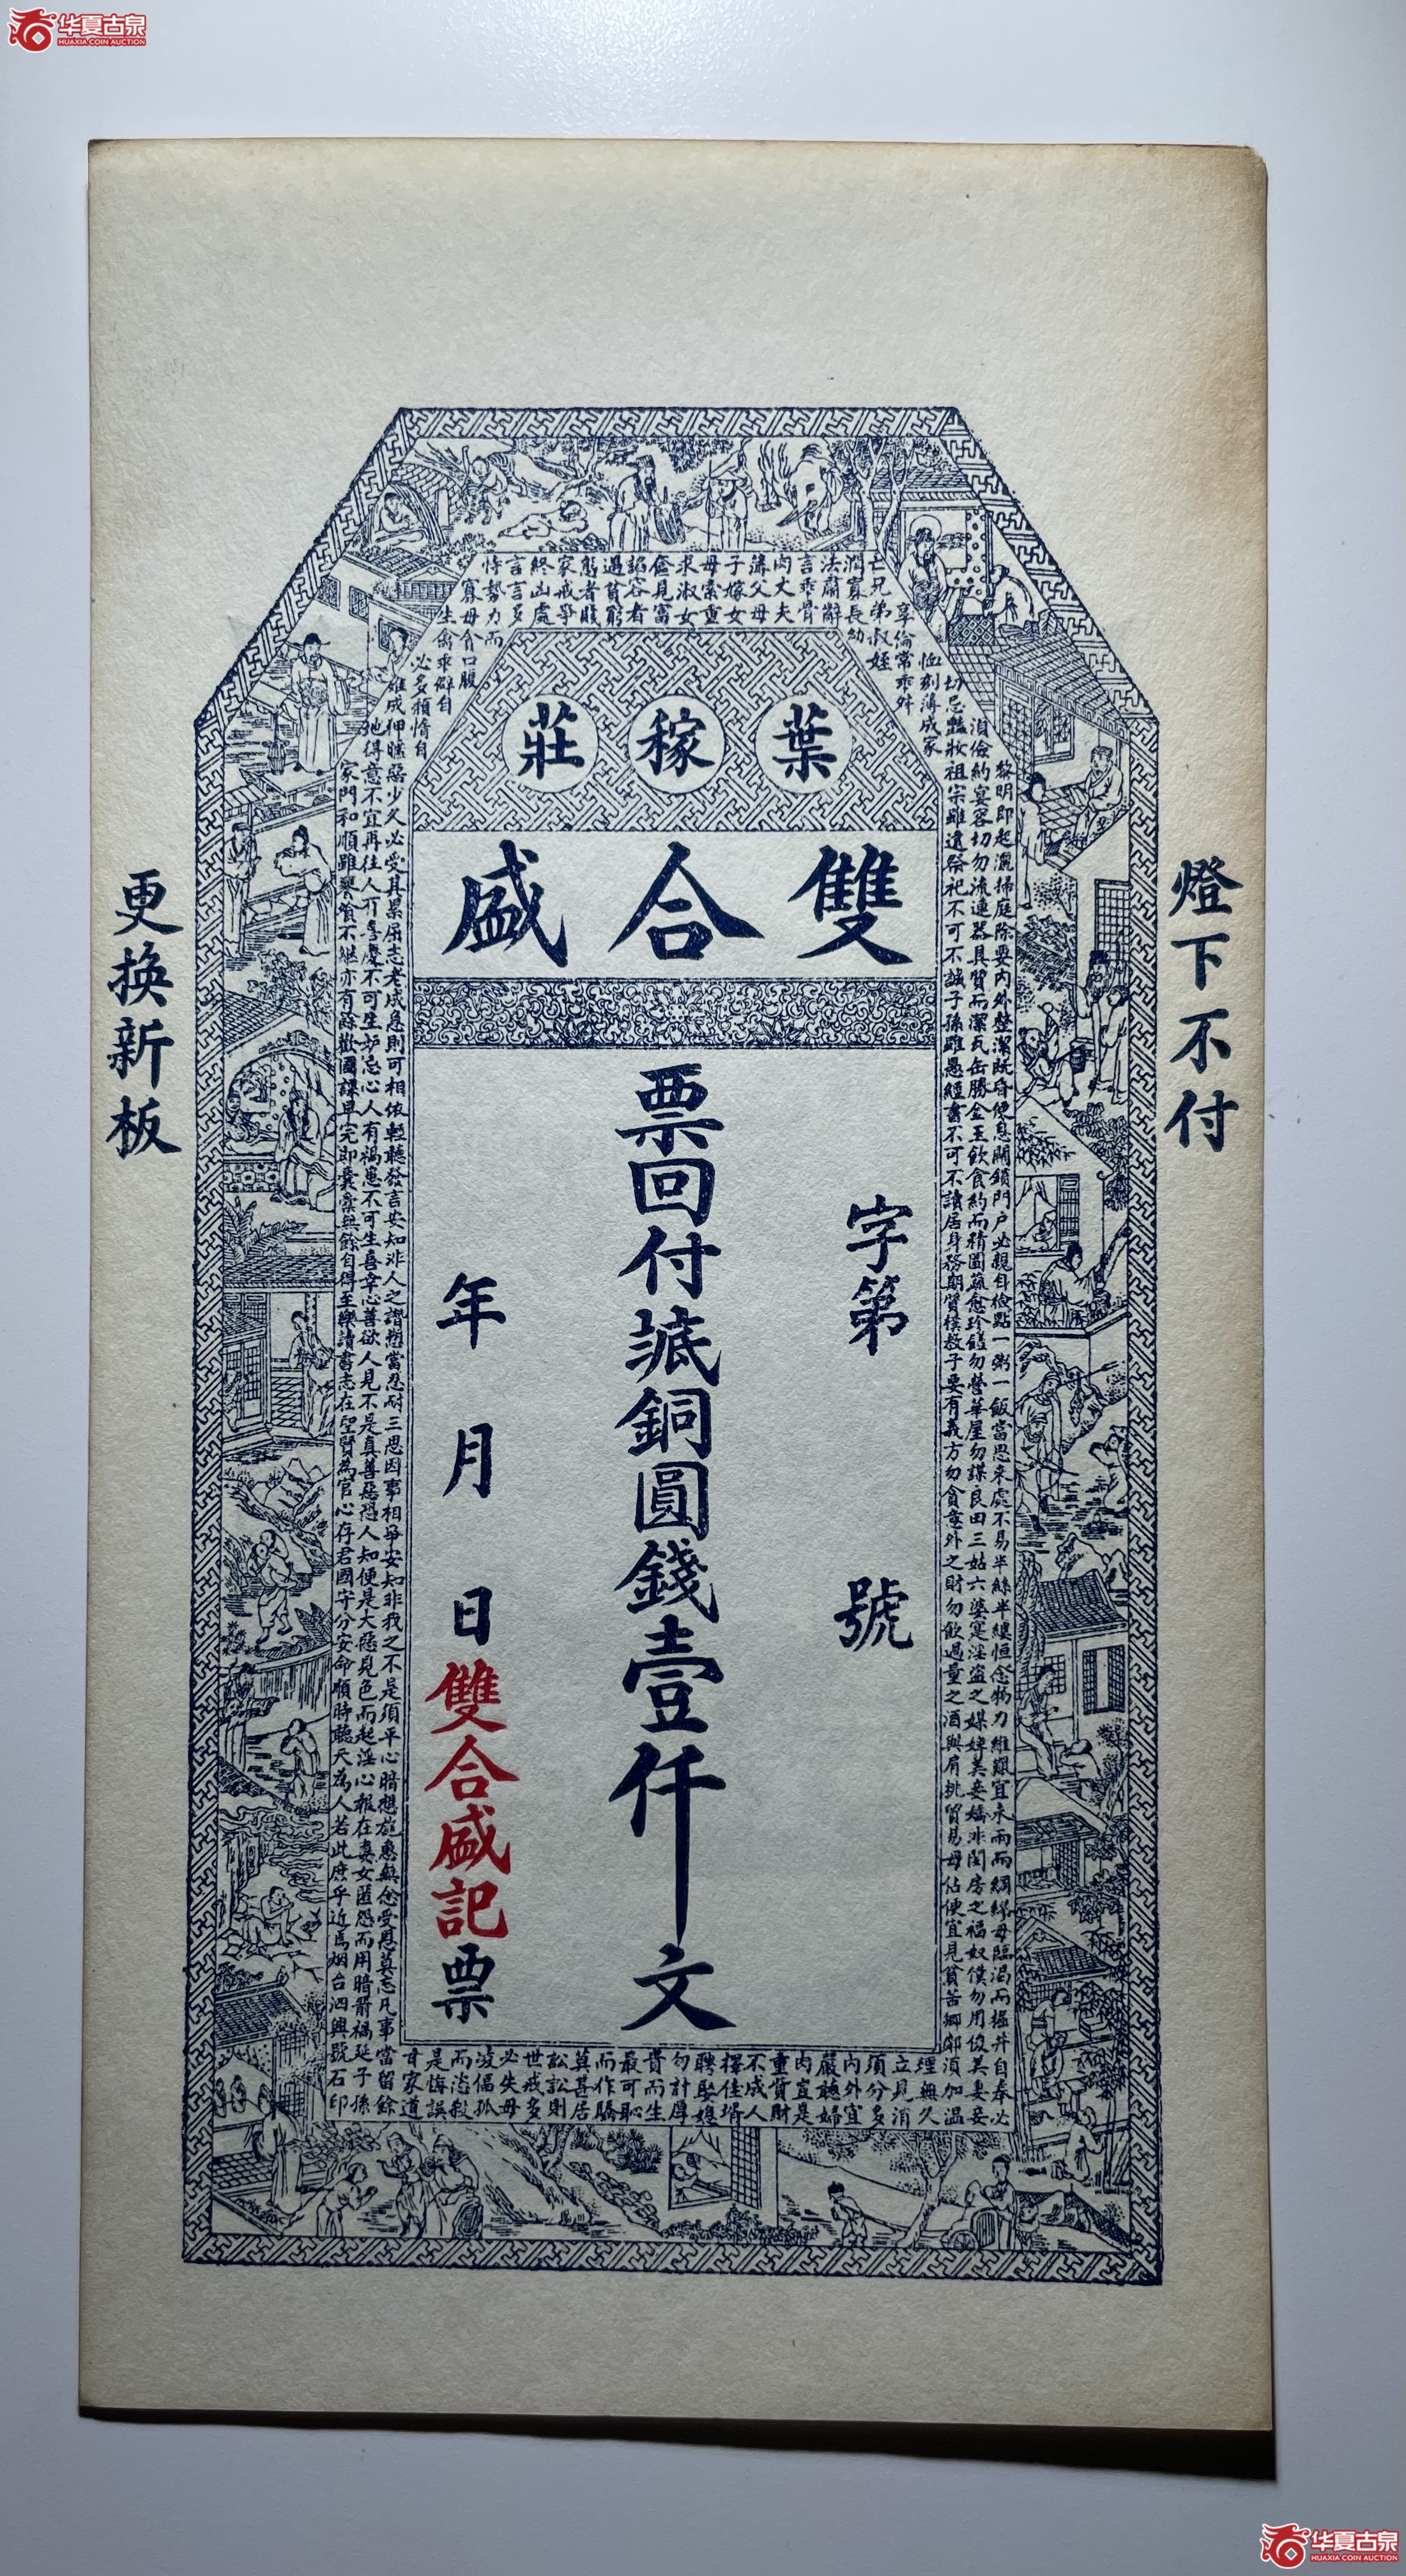 华夏古泉
HUAXIA COIN AUCTION
葉稼莊
雙合盛
燈下不付
字第 號
票回付㡳銅圓錢壹仟文
年 月 日雙合盛記票
更換新板
黎明即起灑掃庭除要內外整潔既昏便息關鎖門户必親自檢點一粥一飯當思來處不易半絲半縷恒念物力維艱宜未雨而綢繆毋臨渴而掘井自奉必
須儉約宴客切勿流連器具質而潔瓦缶勝金玉飲食約而精園蔬愈珍饈勿營華屋勿謀良田三姑六婆寔淫盜之媒婢美妾嬌非閨房之福奴僕勿用俊美妻妾
切忌豔妝祖宗雖遠祭祀不可不誠子孫雖愚經書不可不讀居身務期質樸教子要有義方勿貪意外之財勿飲過量之酒與肩挑貿易毋佔便宜見貧苦鄉鄰須加温
恤刻薄成家
理無久
享倫常乖舛
立見消
亡兄弟叔姪
須分多
潤寡長幼
內外宜
法肅辭
嚴聽婦
言乖骨
肉豈是
肉丈夫
重貲財
薄父母
不成人
子嫁女
擇佳壻
毋索重
聘娶媳
求淑女
勿計厚
奩見富
貴而生
諂容者
最可恥
遇貧窮
而作驕
態者賤
莫甚居
家戒爭
訟訟則
終凶處
世戒多
言言多
必失毋
恃勢力而
凌偪孤
寡毋貪口腹
而恣殺
生禽乖僻自
是悔誤
必多頹惰自
甘家道
難成狎暱惡少久必受其累屈志老成急則可相依輕聽發言安知非人之譖愬當忍耐三思因事相爭安知非我之不是須平心暗想施惠無念受恩莫忘凡事當留餘
地得意不宜再往人有喜慶不可生妒忌心人有禍患不可生喜幸心善欲人見不是真善惡恐人知便是大惡見色而起淫心報在妻女匿怨而用暗箭禍延子孫
家門和順雖饔飧不繼亦有餘歡國課早完即囊橐無餘自得至樂讀書志在聖賢為官心存君國守分安命順時聽天為人若此庶乎近焉烟台泗興號石印
华夏古泉
HUAXIA COIN AUCTION